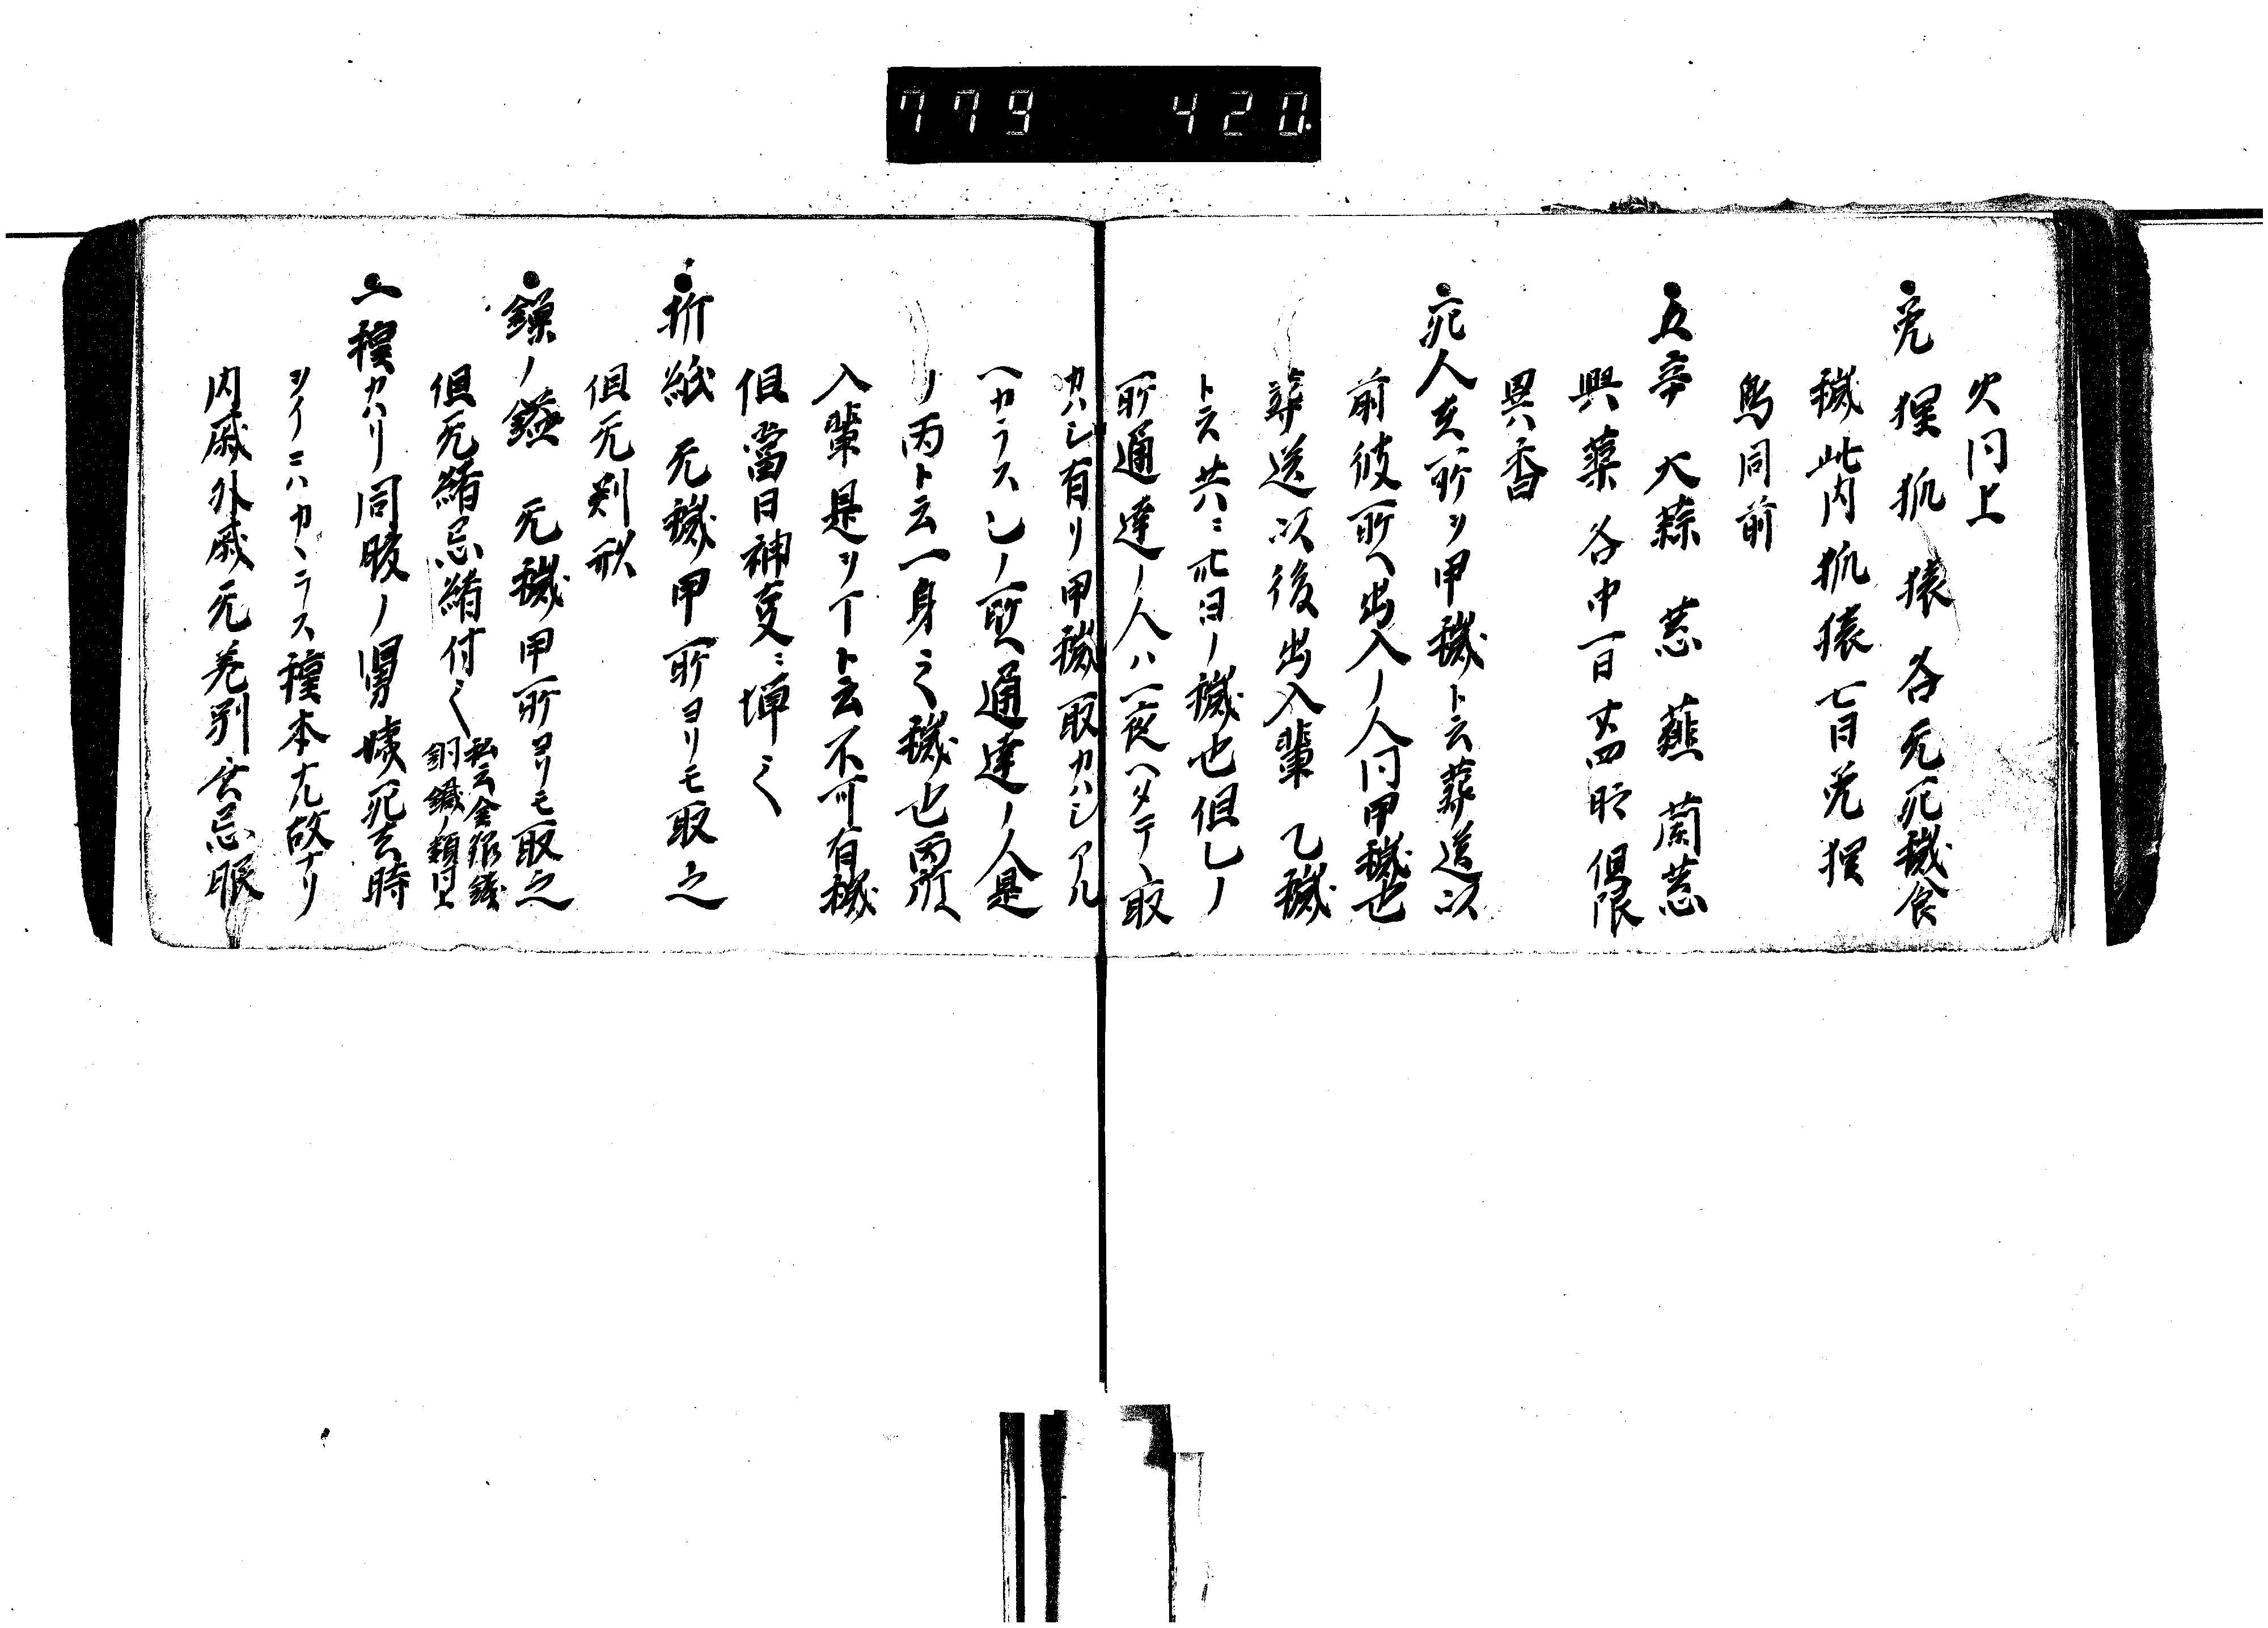 779 420
火同上
・兎 狸 狐 猿 各无死穢食
穢此内狐猿七日兎狸
鳥同前
・五辛 大蒜 葱 薤 蘭葱
興蕖 各中一日 但限
異香
・死人在所ヲ甲穢ト云葬送以
前彼所ヘ出入ノ人同甲穢也
葬送以後出入輩乙穢
トス共ニ卅ヨノ穢也但乙ノ
所通達ノ人ハ一夜ヘタテヽ取
カハシ有リ甲穢取カハシアル
ヘカラス乙ノ所ヘ通達ノ人是
ヲ丙ト云一身之穢也丙所ヘ
入輩是ヲ丁ト云不可有穢
但當日神事ニ憚之
・折紙 无穢甲所ヨリモ取之
但无判形
・鎌ノ 无穢甲所ヨリモ取之
但无緒忌緒付之 私云金銀銭
銅鐵ノ類同上
・一腹カハリ同腹ノ舅姨死去時
ツイニハカヽラス腹本ナル故ナリ
内戚外戚无差別 忌服